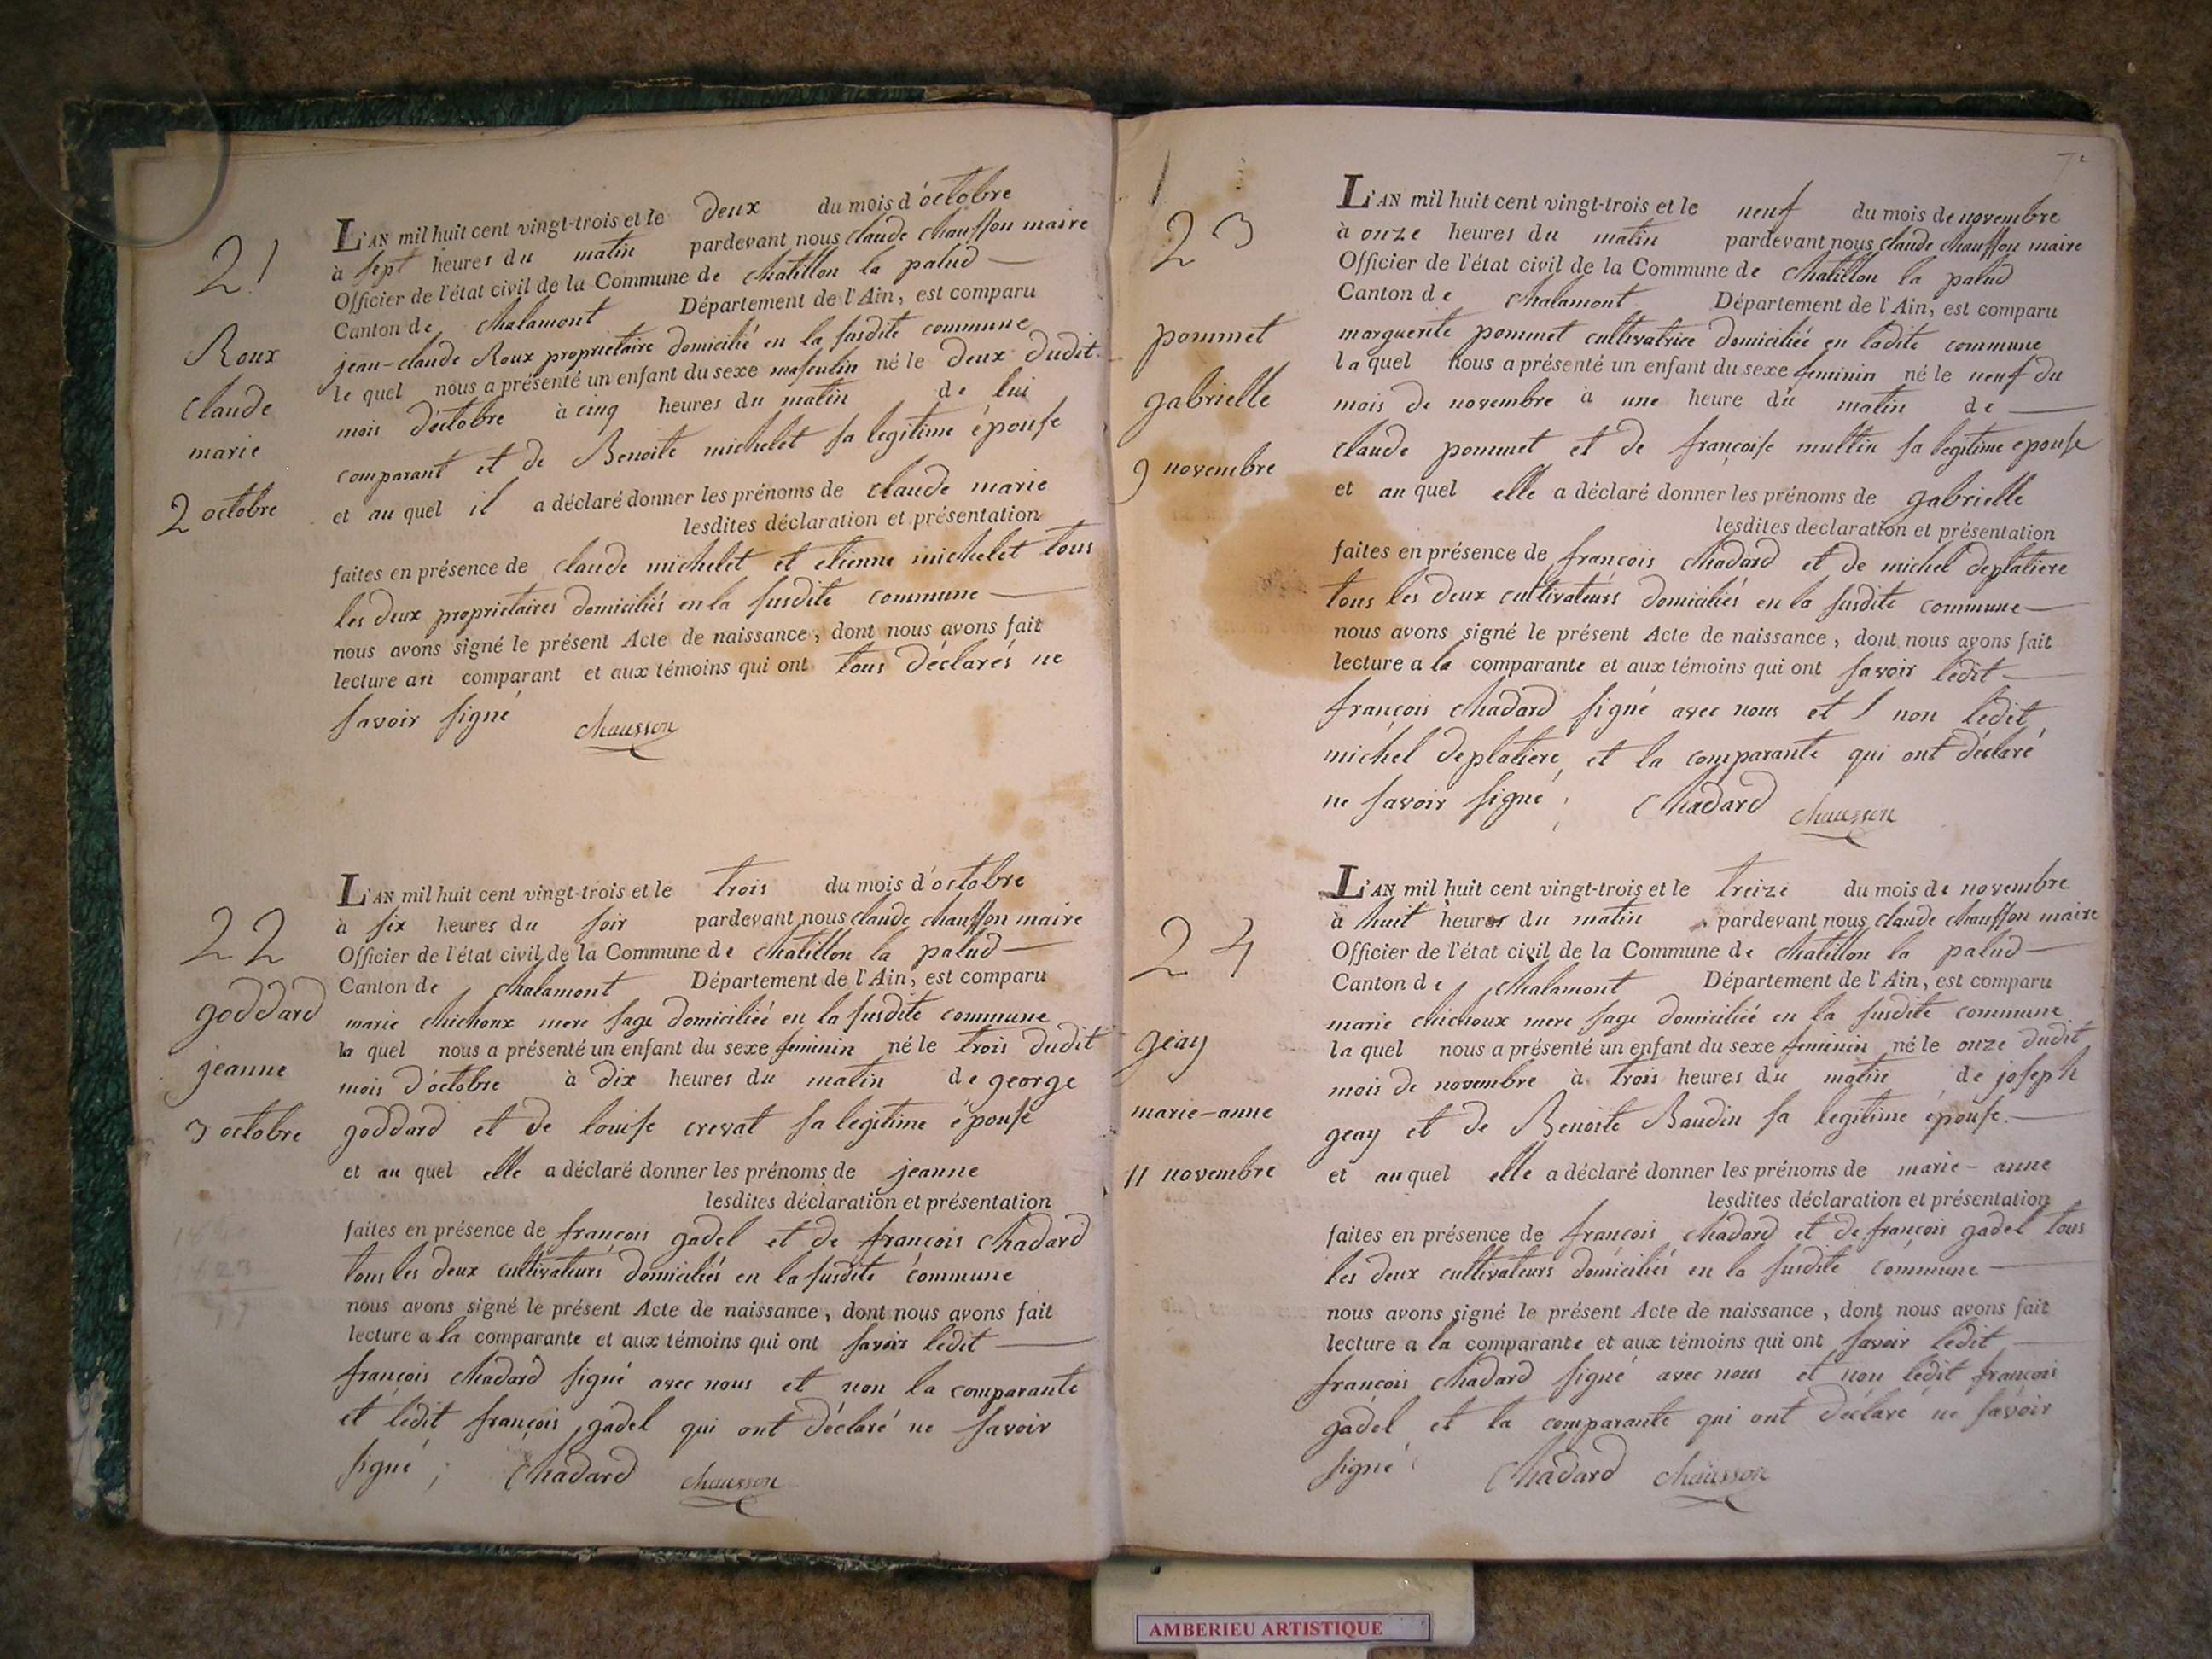 21
Roux
claude
marie
2 octobre
L'AN mil huit cent vingt-trois et le deux du mois d'octobre
à sept heures du matin pardevant nous claude chausson maire
Officier de l'état civil de la Commune de chatillon la palud
Canton de chalamont Département de l'Ain, est comparu
jean-claude Roux proprietaire domicilié en la susdite commune
le quel nous a présenté un enfant du sexe masculin né le deux dudit
mois d'octobre à cinq heures du matin de lui
comparant et de Benoite michelet sa legitime épouse
et au quel il a déclaré donner les prénoms de claude marie
lesdites déclaration et présentation
faites en présence de claude michelet et etienne michelet tous
les deux proprietaires domiciliés en la susdite commune
nous avons signé le présent Acte de naissance, dont nous avons fait
lecture au comparant et aux témoins qui ont tous déclarés ne
savoir signé
chausson
22
goddard
jeanne
3 octobre
L'AN mil huit cent vingt-trois et le trois du mois d'octobre
à six heures du soir pardevant nous claude chausson maire
Officier de l'état civil de la Commune de chatillon la palud
Canton de chalamont Département de l'Ain, est comparu
marie chichoux mere sage domiciliée en la susdite commune
la quel nous a présenté un enfant du sexe feminin né le trois dudit
mois d'octobre à dix heures du matin de george
goddard et de louise crevat sa legitime épouse
et au quel elle a déclaré donner les prénoms de jeanne
lesdites déclaration et présentation
faites en présence de françois gadel et de françois chadard
tous les deux cultivateurs domiciliés en la susdite commune
nous avons signé le présent Acte de naissance, dont nous avons fait
lecture a la comparante et aux témoins qui ont savoir ledit
françois chadard signé avec nous et non la comparante
et ledit françois gadel qui ont déclaré ne savoir
signé ; chadard chausson
23
pommet
gabrielle
9 novembre
L'AN mil huit cent vingt-trois et le neuf du mois de novembre
à onze heures du matin pardevant nous claude chausson maire
Officier de l'état civil de la Commune de chatillon la palud
Canton de chalamont Département de l'Ain, est comparu
marguerite pommet cultivatrice domiciliée en ladite commune
la quel nous a présenté un enfant du sexe feminin né le neuf du
mois de novembre à une heure du matin de
claude pommet et de françoise multin sa legitime epouse
et au quel elle a déclaré donner les prénoms de gabrielle
lesdites declaration et présentation
faites en présence de françois chadard et de michel deplatiere
tous les deux cultivateurs domiciliés en la susdite commune
nous avons signé le présent Acte de naissance, dont nous avons fait
lecture a la comparante et aux témoins qui ont savoir ledit
françois chadard signé avec nous et non ledit
michel deplatiere et la comparante qui ont déclaré
ne savoir signé ; chadard chausson
24
geay
marie-anne
11 novembre
L'AN mil huit cent vingt-trois et le treize du mois de novembre
à huit heures du matin pardevant nous claude chausson maire
Officier de l'état civil de la Commune de chatillon la palud
Canton de chalamont Département de l'Ain, est comparu
marie chichoux mere sage domiciliée en la susdite commune
la quel nous a présenté un enfant du sexe feminin né le onze dudit
mois de novembre à trois heures du matin de joseph
geay et de Benoite Baudin sa legitime épouse.
et au quel elle a déclaré donner les prénoms de marie-anne
lesdites déclaration et présentation
faites en présence de françois chadard et de françois gadel tous
les deux cultivateurs domiciliés en la susdite commune
nous avons signé le présent Acte de naissance, dont nous avons fait
lecture a la comparante et aux témoins qui ont savoir ledit
françois chadard signé avec nous et non ledit françois
gadel et la comparante qui ont déclaré ne savoir
signé chadard chausson
AMBERIEU ARTISTIQUE